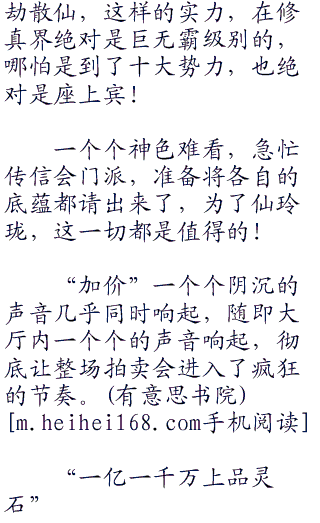 劫散仙，这样的实力，在修
真界绝对是巨无霸级别的，
哪怕是到了十大势力，也绝
对是座上宾！
一个个神色难看，急忙
传信会门派，准备将各自的
底蕴都请出来了，为了仙玲
珑，这一切都是值得的！
“加价”一个个阴沉的
声音几乎同时响起，随即大
厅内一个个的声音响起，彻
底让整场拍卖会进入了疯狂
的节奏。(有意思书院)
[m.heihei168.com手机阅读]
“一亿一千万上品灵
石”